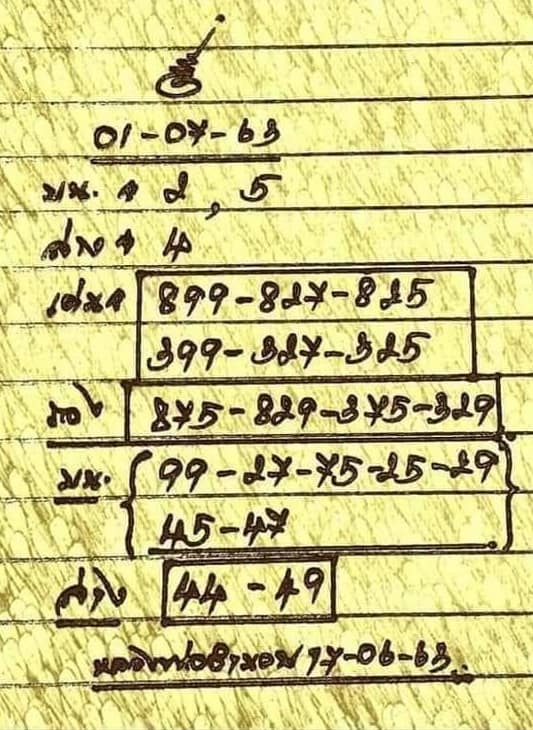 01-07-63
บน. จ 2, 5
ล่าง จ 4
เด่นจ 899-827-825
399-327-325
875-829-375-329
บน. 99-27-75-25-29
45-47
ล่าง 44-49
17-06-63.